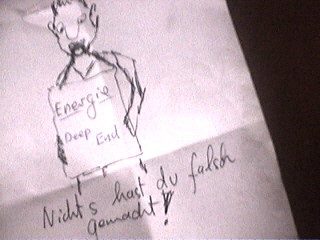 Energie
Deep End
Nichts hast du falsch
gemacht!